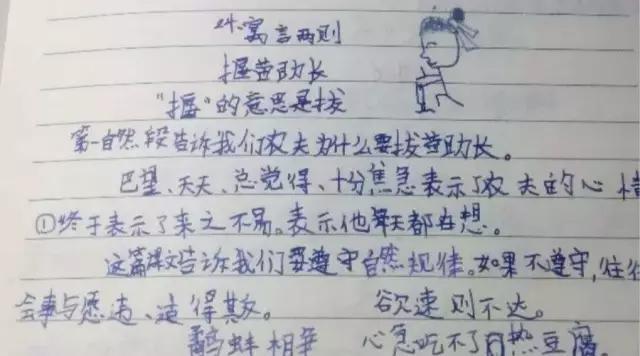 24.寓言两则
揠苗助长
"揠"的意思是拔
第一自然段告诉我们农夫为什么要拔苗助长。
巴望、天天、总觉得、十分焦急表示了农夫的心情
①终于表示了来之不易。表示他每天都在想。
这篇课文告诉我们要遵守自然规律。如果不遵守,往往
会事与愿违、适得其反。 欲速则不达。
鹬蚌相争 心急吃不了热豆腐。